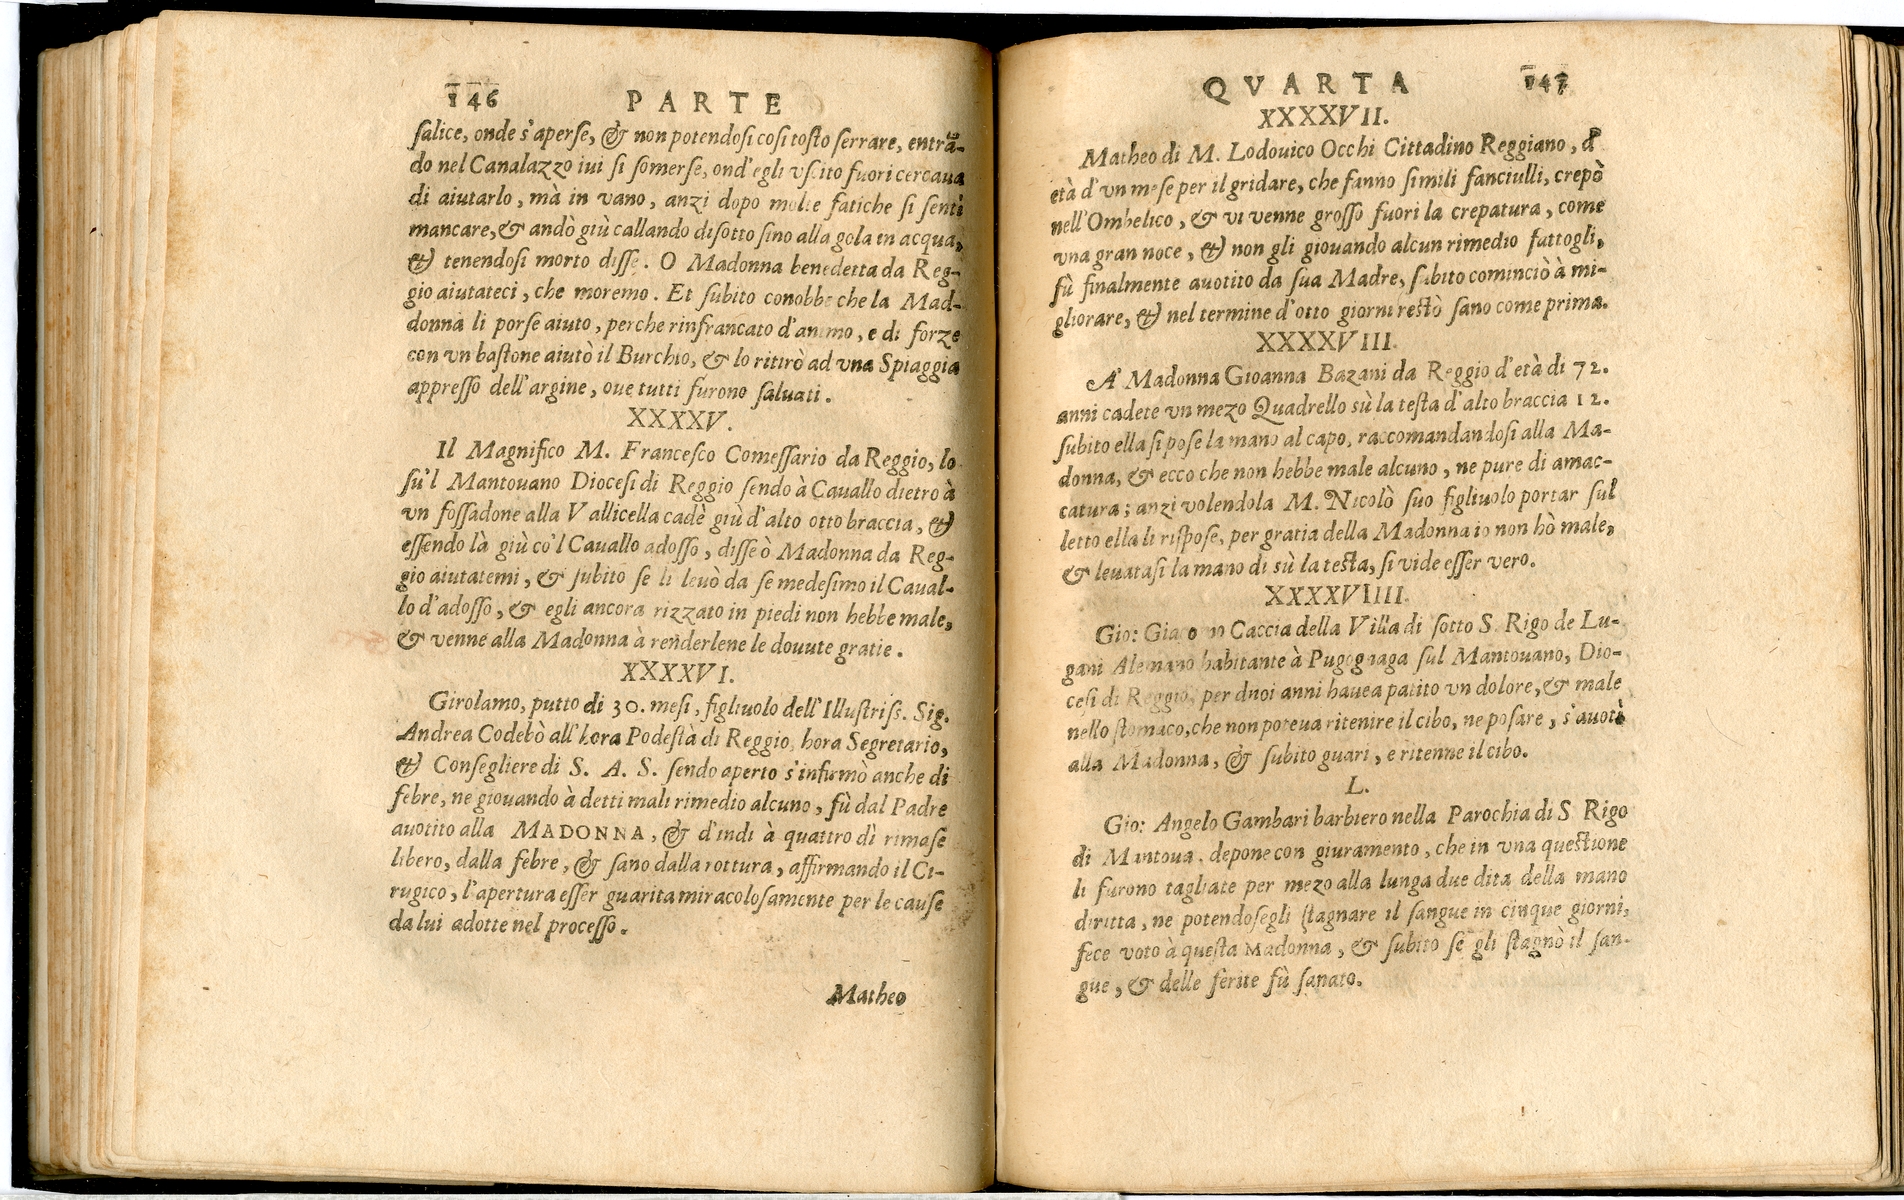 146
PARTE
salice, onde s'aperse, & non potendosi cosi tosto serrare, entrã-
do nel Canalazzo iui si somerse, ond'egli vscito fuori cercaua
di aiutarlo, mà in vano, anzi dopo molte fatiche si sentì
mancare, & andò giù callando disotto sino alla gola in acqua,
& tenendosi morto disse. O Madonna benedetta da Reg-
gio aiutateci, che moremo. Et subito conobbe che la Mad-
donna li porse aiuto, perche rinfrancato d'animo, e di forze
con vn bastone aiutò il Burchio, & lo ritirò ad vna Spiaggia
appresso dell'argine, oue tutti furono saluati.
XXXXV.
Il Magnifico M. Francesco Comessario da Reggio, lo
sù'l Mantouano Diocesi di Reggio sendo à Cauallo dietro à
vn fossadone alla Vallicella cadè giù d'alto otto braccia, &
essendo là giù co'l Cauallo adosso, disse ò Madonna da Reg-
gio aiutatemi, & subito se li leuò da se medesimo il Caual-
lo d'adosso, & egli ancora rizzato in piedi non hebbe male,
& venne alla Madonna à renderlene le douute gratie.
XXXXVI.
Girolamo, putto di 30. mesi, figliuolo dell'Illustriss. Sig.
Andrea Codebò all'hora Podestà di Reggio, hora Segretario,
& Consegliere di S. A. S. sendo aperto s'infirmò anche di
febre, ne giouando à detti mali rimedio alcuno, fù dal Padre
auotito alla MADONNA, & d'indi à quattro dì rimase
libero, dalla febre, & sano dalla rottura, affirmando il Ci-
rugico, l'apertura esser guarita miracolosamente per le cause
da lui adotte nel processo.
Matheo
QVARTA
147
XXXXVII.
Matheo di M. Lodouico Occhi Cittadino Reggiano, d'
età d'vn mese per il gridare, che fanno simili fanciulli, crepò
nell'Ombelico, & vi venne grosso fuori la crepatura, come
vna gran noce, & non gli giouando alcun rimedio fattogli,
fù finalmente auotito da sua Madre, subito cominciò à mi-
gliorare, & nel termine d'otto giorni restò sano come prima.
XXXXVIII.
A' Madonna Gioanna Bazani da Reggio d'età di 72.
anni cadete vn mezo Quadrello sù la testa d'alto braccia 12.
subito ella si pose la mano al capo, raccomandandosi alla Ma-
donna, & ecco che non hebbe male alcuno, ne pure di amac-
catura; anzi volendola M. Nicolò suo figliuolo portar sul
letto ella li rispose, per gratia della Madonna io non hò male,
& leuatasi la mano di sù la testa, si vide esser vero.
XXXXVIIII.
Gio: Giacomo Caccia della Villa di sotto S. Rigo de Lu-
gani Alemano habitante à Pugognaga sul Mantouano, Dio-
cesi di Reggio, per duoi anni hauea patito vn dolore, & male
nello stomaco, che non poteua ritenire il cibo, ne posare, s'auotì
alla Madonna, & subito guari, e ritenne il cibo.
L.
Gio: Angelo Gambari barbiero nella Parochia di S Rigo
di Mantoua, depone con giuramento, che in vna questione
li furono tagliate per mezo alla lunga due dita della mano
diritta, ne potendosegli stagnare il sangue in cinque giorni,
fece voto à questa Madonna, & subito se gli stagnò il san-
gue, & delle ferite fù sanato.